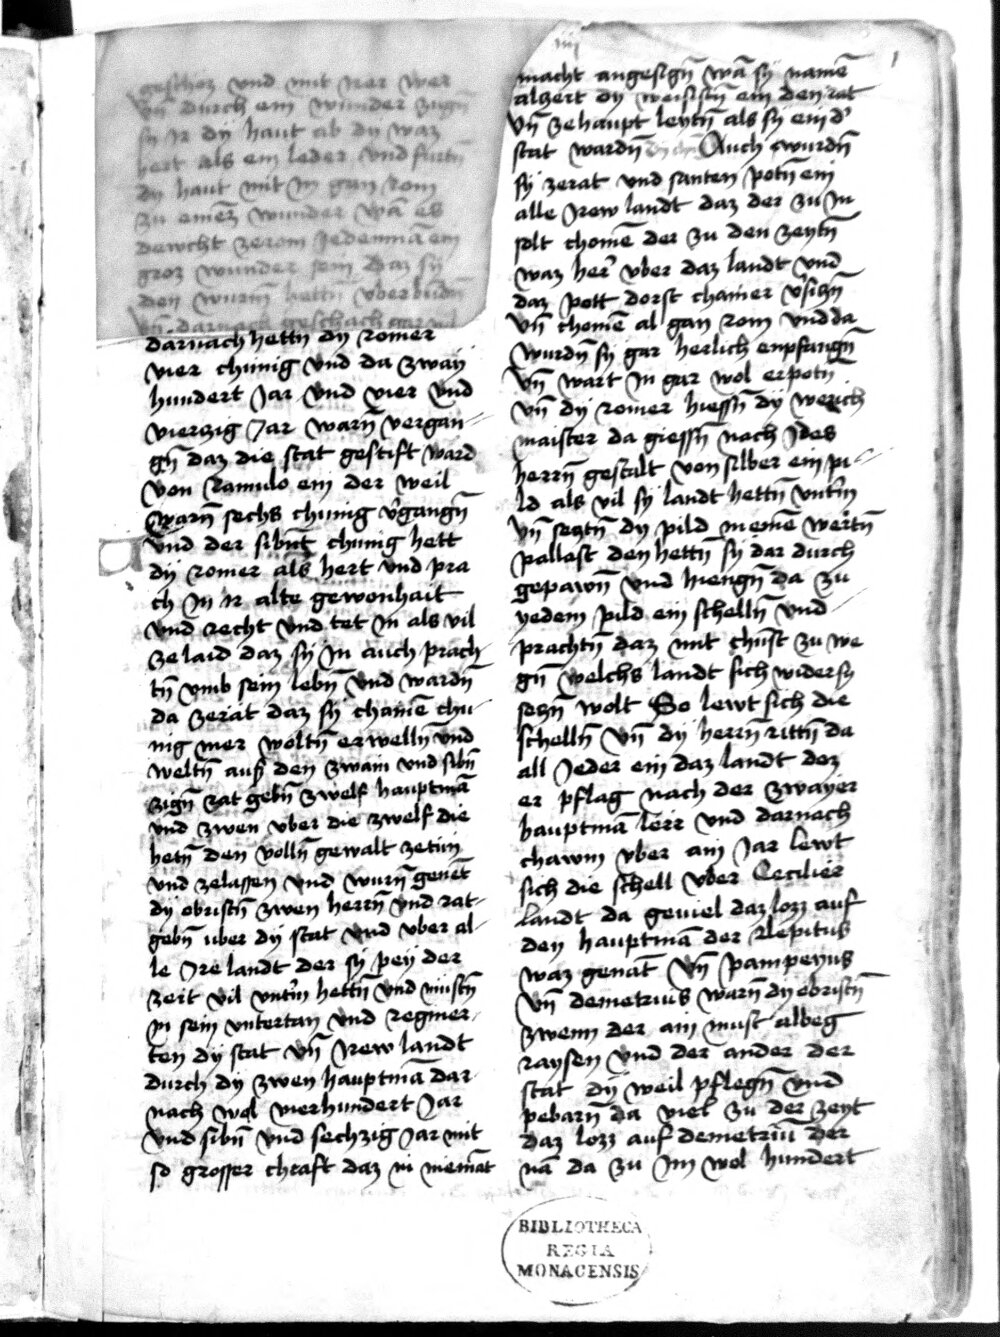 geschoz vnd mit irer wer
vn̄ durch ein wunder zugn̄
sy ir dy haut ab dy waz
hert als ein leder vnd furtn̄
dy haut mit in gan rom
zu einez wunder wā es
dewcht zerom jedenmā ein
groz wunder sein daz sy
den wurm̄ hettn̄ vberbundn̄
vn̄ darnach geschach
darnach hettn dy romer
vier chunig vnd da zway
hundert Jar vnd vier vnd
vierczig Jar warn̄ vergan-
gn̄ daz die stat gestift ward
von Ramulo ein der weil
warn̄ sechs chunig v̉gangn̄
vnd der sibn̄t chunig hett
dy romer als hert vnd pra
ch in ir alte gewonhait
vnd recht vnd tet in als vil
ze laid daz sy in auch prach
tn̄ vmb sein lebn̄ vnd wardn̄
da zerat daz sy chainē chu-
nig mer woltn̄ erwelln̄ vnd
weltn̄ auß den zwain vnd sibn̄
zign̄ rat gebn̄ zwelf hauptmā
vnd zwen vber die zwelf die
hetn̄ den volln̄ gewalt zetun
vnd zelassen vnd wurn̄ genēt
dy obristn̄ zwen herrn̄ vnd rat-
gebn̄ uber dy stat vnd vber al-
le Ire landt der sy pey der
zeit vil vnt̉m hettn̄ vnd mustn̄
in sein vntertan vnd regnier-
ten dy stat vn̄ Irew landt
durch dy zwen hauptmā dar-
nach wol vierhundert Jar
vnd sibn̄ vnd sechzig Jar mit
so grosser chraft daz in niemāt
iij
1
macht angesign̄ wā sy namē
alzeit dy weisistn̄ ein den rat
vn̄ ze haupt leytn̄ als sy ein d̉
stat wardn̄ Auch wurdn̄
sy zerat vnd santen potn̄ ein
alle Irew landt daz der zu in
solt chomē der zu den zeytn̄
waz her̉ vber daz landt vnd
daz pott dorst chainer v̉siczn̄
vn̄ chomē al gan rom vnd da
wurdn̄ sy gar herlich enpfangn̄
vn̄ wart in gar wol erpotn̄
vn̄ dy romer hiessn̄ dy werich
maister da giessn̄ nach Ides
herrn̄ gestalt von silber ein pi-
ld als vil sy landt hettn̄ vnt̉m
vn̄ seztn̄ dy pild in einē wertn̄
pallast den hettn̄ sy dar durch
gepawn̄ vnd hiengn̄ da zu
yedem pild ein schelln̄ vnd
prachtn̄ daz mit chūst zu we
gn̄ welchs landt sich widersy
seczn̄ wolt So lewt sich die
schelln̄ vn̄ dy herrn̄ rittn̄ da
all Jeder ein daz landt dez
er pflag nach der zwayer
hauptmā lerr vnd darnach
chawm vber ain Jar lewt
sich die schell vber Cecilier
landt da geviel daz lozz auf
den hauptmā der Rlepitus
waz genāt vn̄ pampeyus
vn̄ demetrius warn̄ dy obristn̄
zwenn der ain must albeg
raysen vnd der ander der
stat dy weil pflegn̄ vnd
pebarn̄ da viel zu der zeyt
daz lozz auf demetriū der
nā da zu im wol hundert
BIBLIOTHECA
REGIA
MONACENSIS